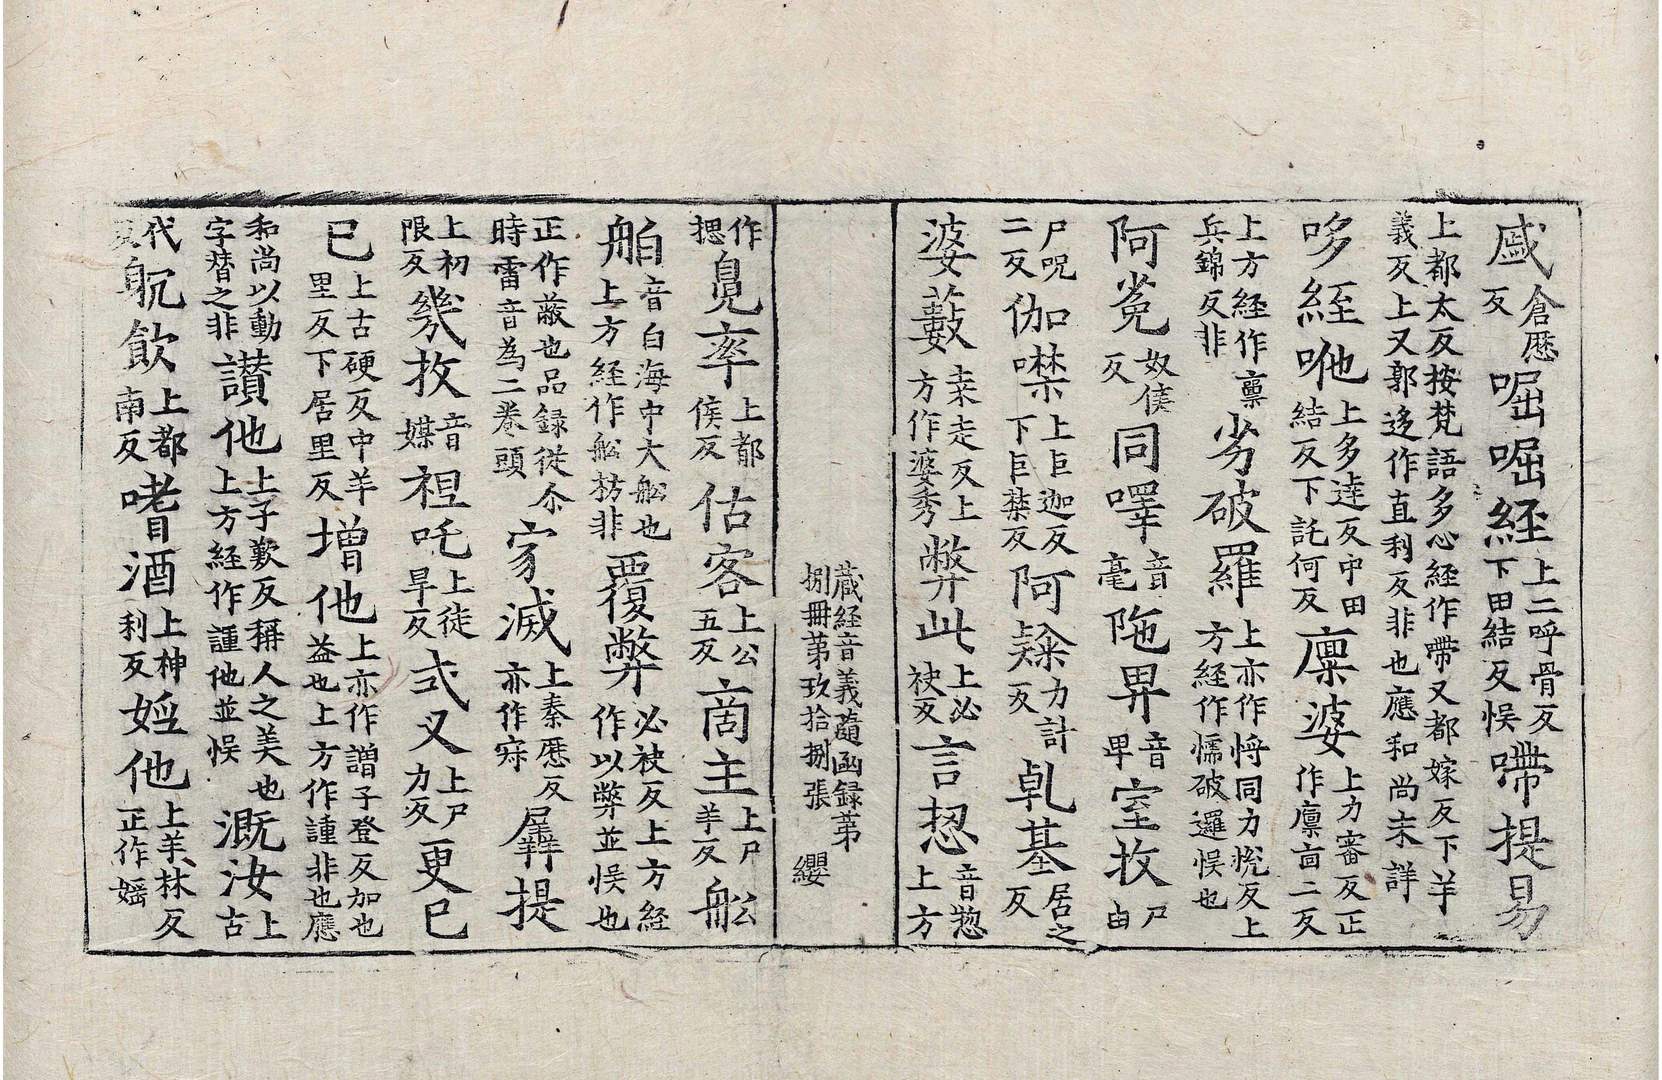 戚倉歷反啒啒絰上二呼骨反下田結反悮嚌提易
上都太反按梵語多心経作帶又都嫁反下羊義反上又郭迻作直利反非也應和尚未詳
哆絰吔上多達反中田結反下託何反廪婆上力審反正作廩㐭二反
上方経作禀兵錦反非劣破羅上亦作㝵同力悅反上方経作懦破邏悮也
阿㝹奴侯反同嚁音毫陁界音畀室抜尸由
尸呪二反伽噤上巨迦反下巨禁反阿𨽻力計反乹基居之反
婆薮桒走反上方作婆秀弊此上必袂反言惒音惣上方
藏経音義隨函録第捌冊第玖拾捌張 纓
作揌鳬率上都侯反估客上公五反啇主上尸羊反舩
舶音白海中大舩也上方経作舩舫非覆弊必袂反上方経作以弊並悮也
正作蔽也品録従尒時雷音為二巻頭家滅上秦歷反亦作㝛羼提
上初限反幾枚音媒袒吒上徒旱反弍叉上尸力反更已
已上古硬反中羊里反下居里反增他上亦作譄子登反加也益也上方作諥非也應
和尚以動字替之非讃他上子歎反稱人之美也上方経作諥他並悮溉汝上古
代反躭飲上都南反嗜酒上神利反婬他上羊林反正作婬